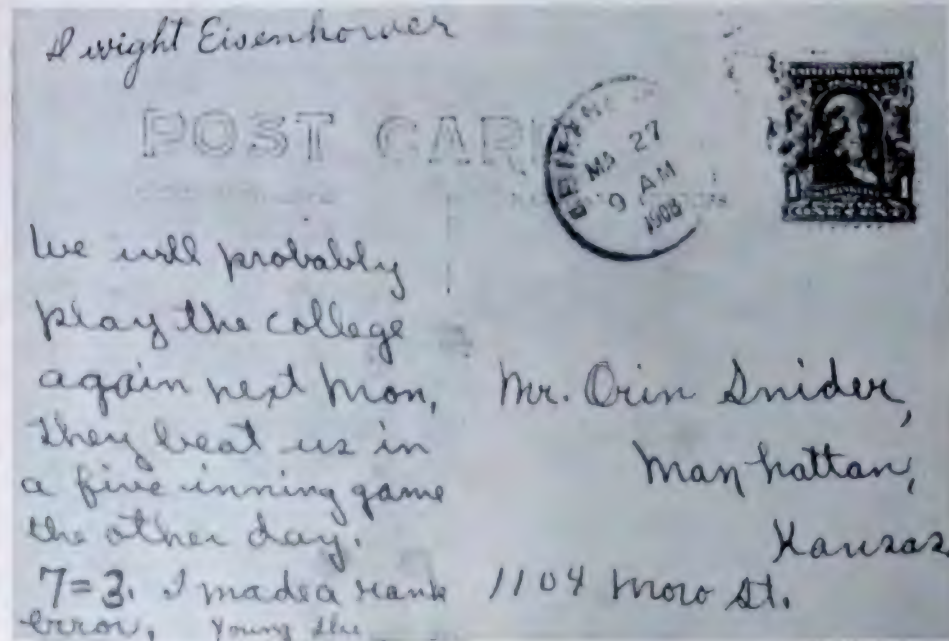 Dwight Eisenhower
POST CARD
MA 27
9 AM
1908
1
We will probably
play the college
again next Mon,
they beat us in
a five inning game
the other day.
7=3. I made a rank
error, Young
Mr. Orin Snider,
Manhattan,
Kansas
1104 Moro St.